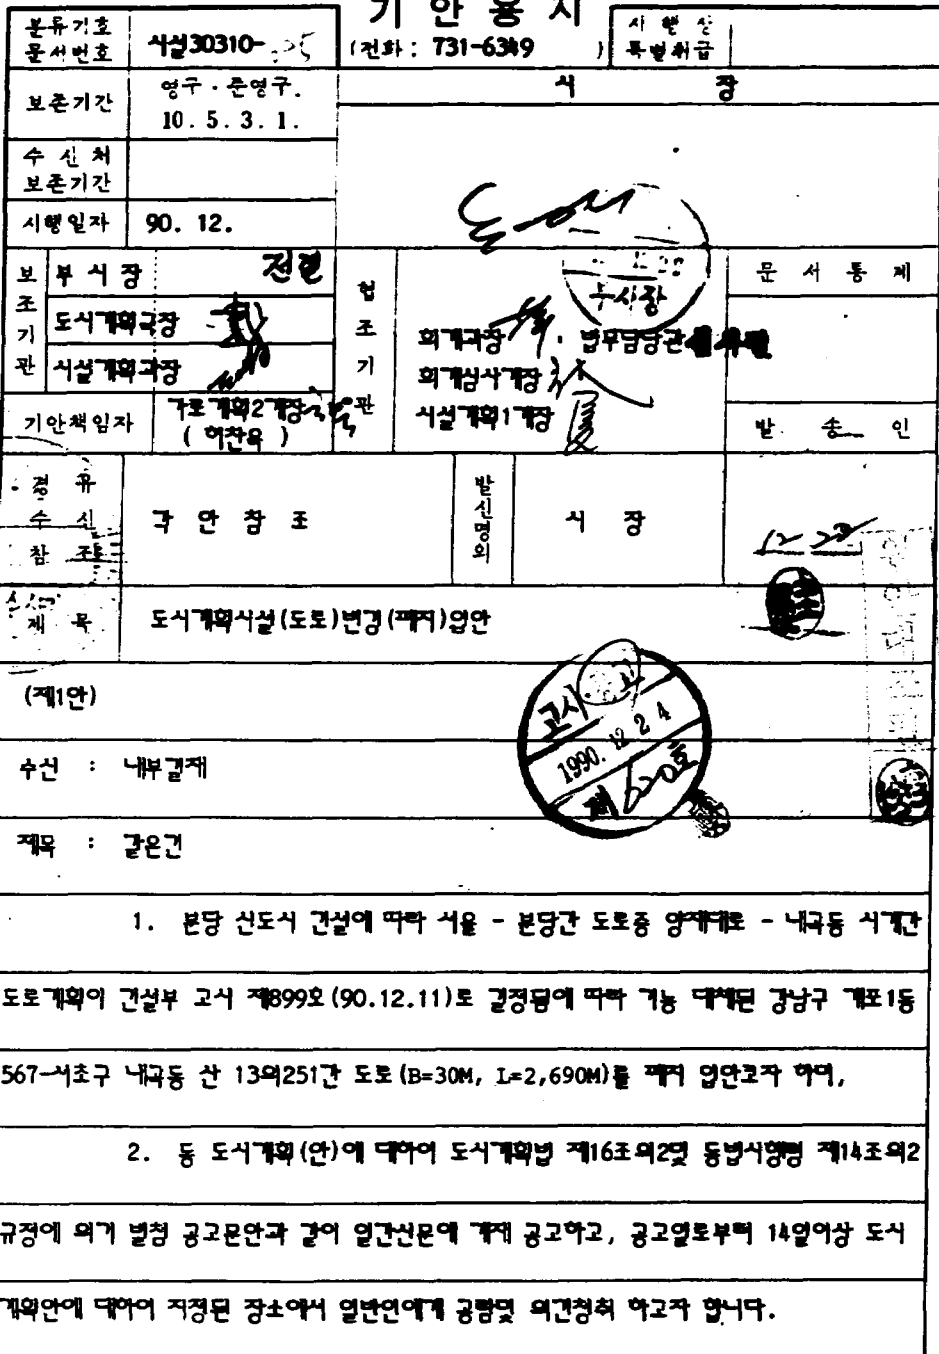 기 안 용 지
분류기호
문서번호
시설30310-
(전화 : 731-6349 )
시 행 상
특별취급
보존기간
영구 · 준영구.
10 . 5 . 3 . 1 .
시 장
수 신 처
보존기간
시행일자 90. 12.
보조기관
부 시 장 전결
도시계획국장
시설계획과장
협조기관
부시장
회계과장
법무담당관
회계심사계장
시설계획1계장
문 서 통 제
기안책임자
가로계획2계장
( 허찬욱 )
발 송 인
경 유
수 신
참 조
각 안 참 조
발신명의
시 장
12 28
제 목 도시계획시설(도로)변경(폐지)입안
(제1안)
고시
1990. 12. 2 4
제 620호
수신 : 내부결재
제목 : 같은건
1. 분당 신도시 건설에 따라 서울 - 분당간 도로중 양재대로 - 내곡동 시계간
도로계획이 건설부 고시 제899호(90.12.11)로 결정됨에 따라 기능 대체된 강남구 개포1동
567-서초구 내곡동 산 13의251간 도로(B=30M, L=2,690M)를 폐지 입안코자 하며,
2. 동 도시계획(안)에 대하여 도시계획법 제16조의2및 동법시행령 제14조의2
규정에 의거 별첨 공고문안과 같이 일간신문에 게재 공고하고, 공고일로부터 14일이상 도시
계획안에 대하여 지정된 장소에서 일반인에게 공람및 의견청취 하고자 합니다.